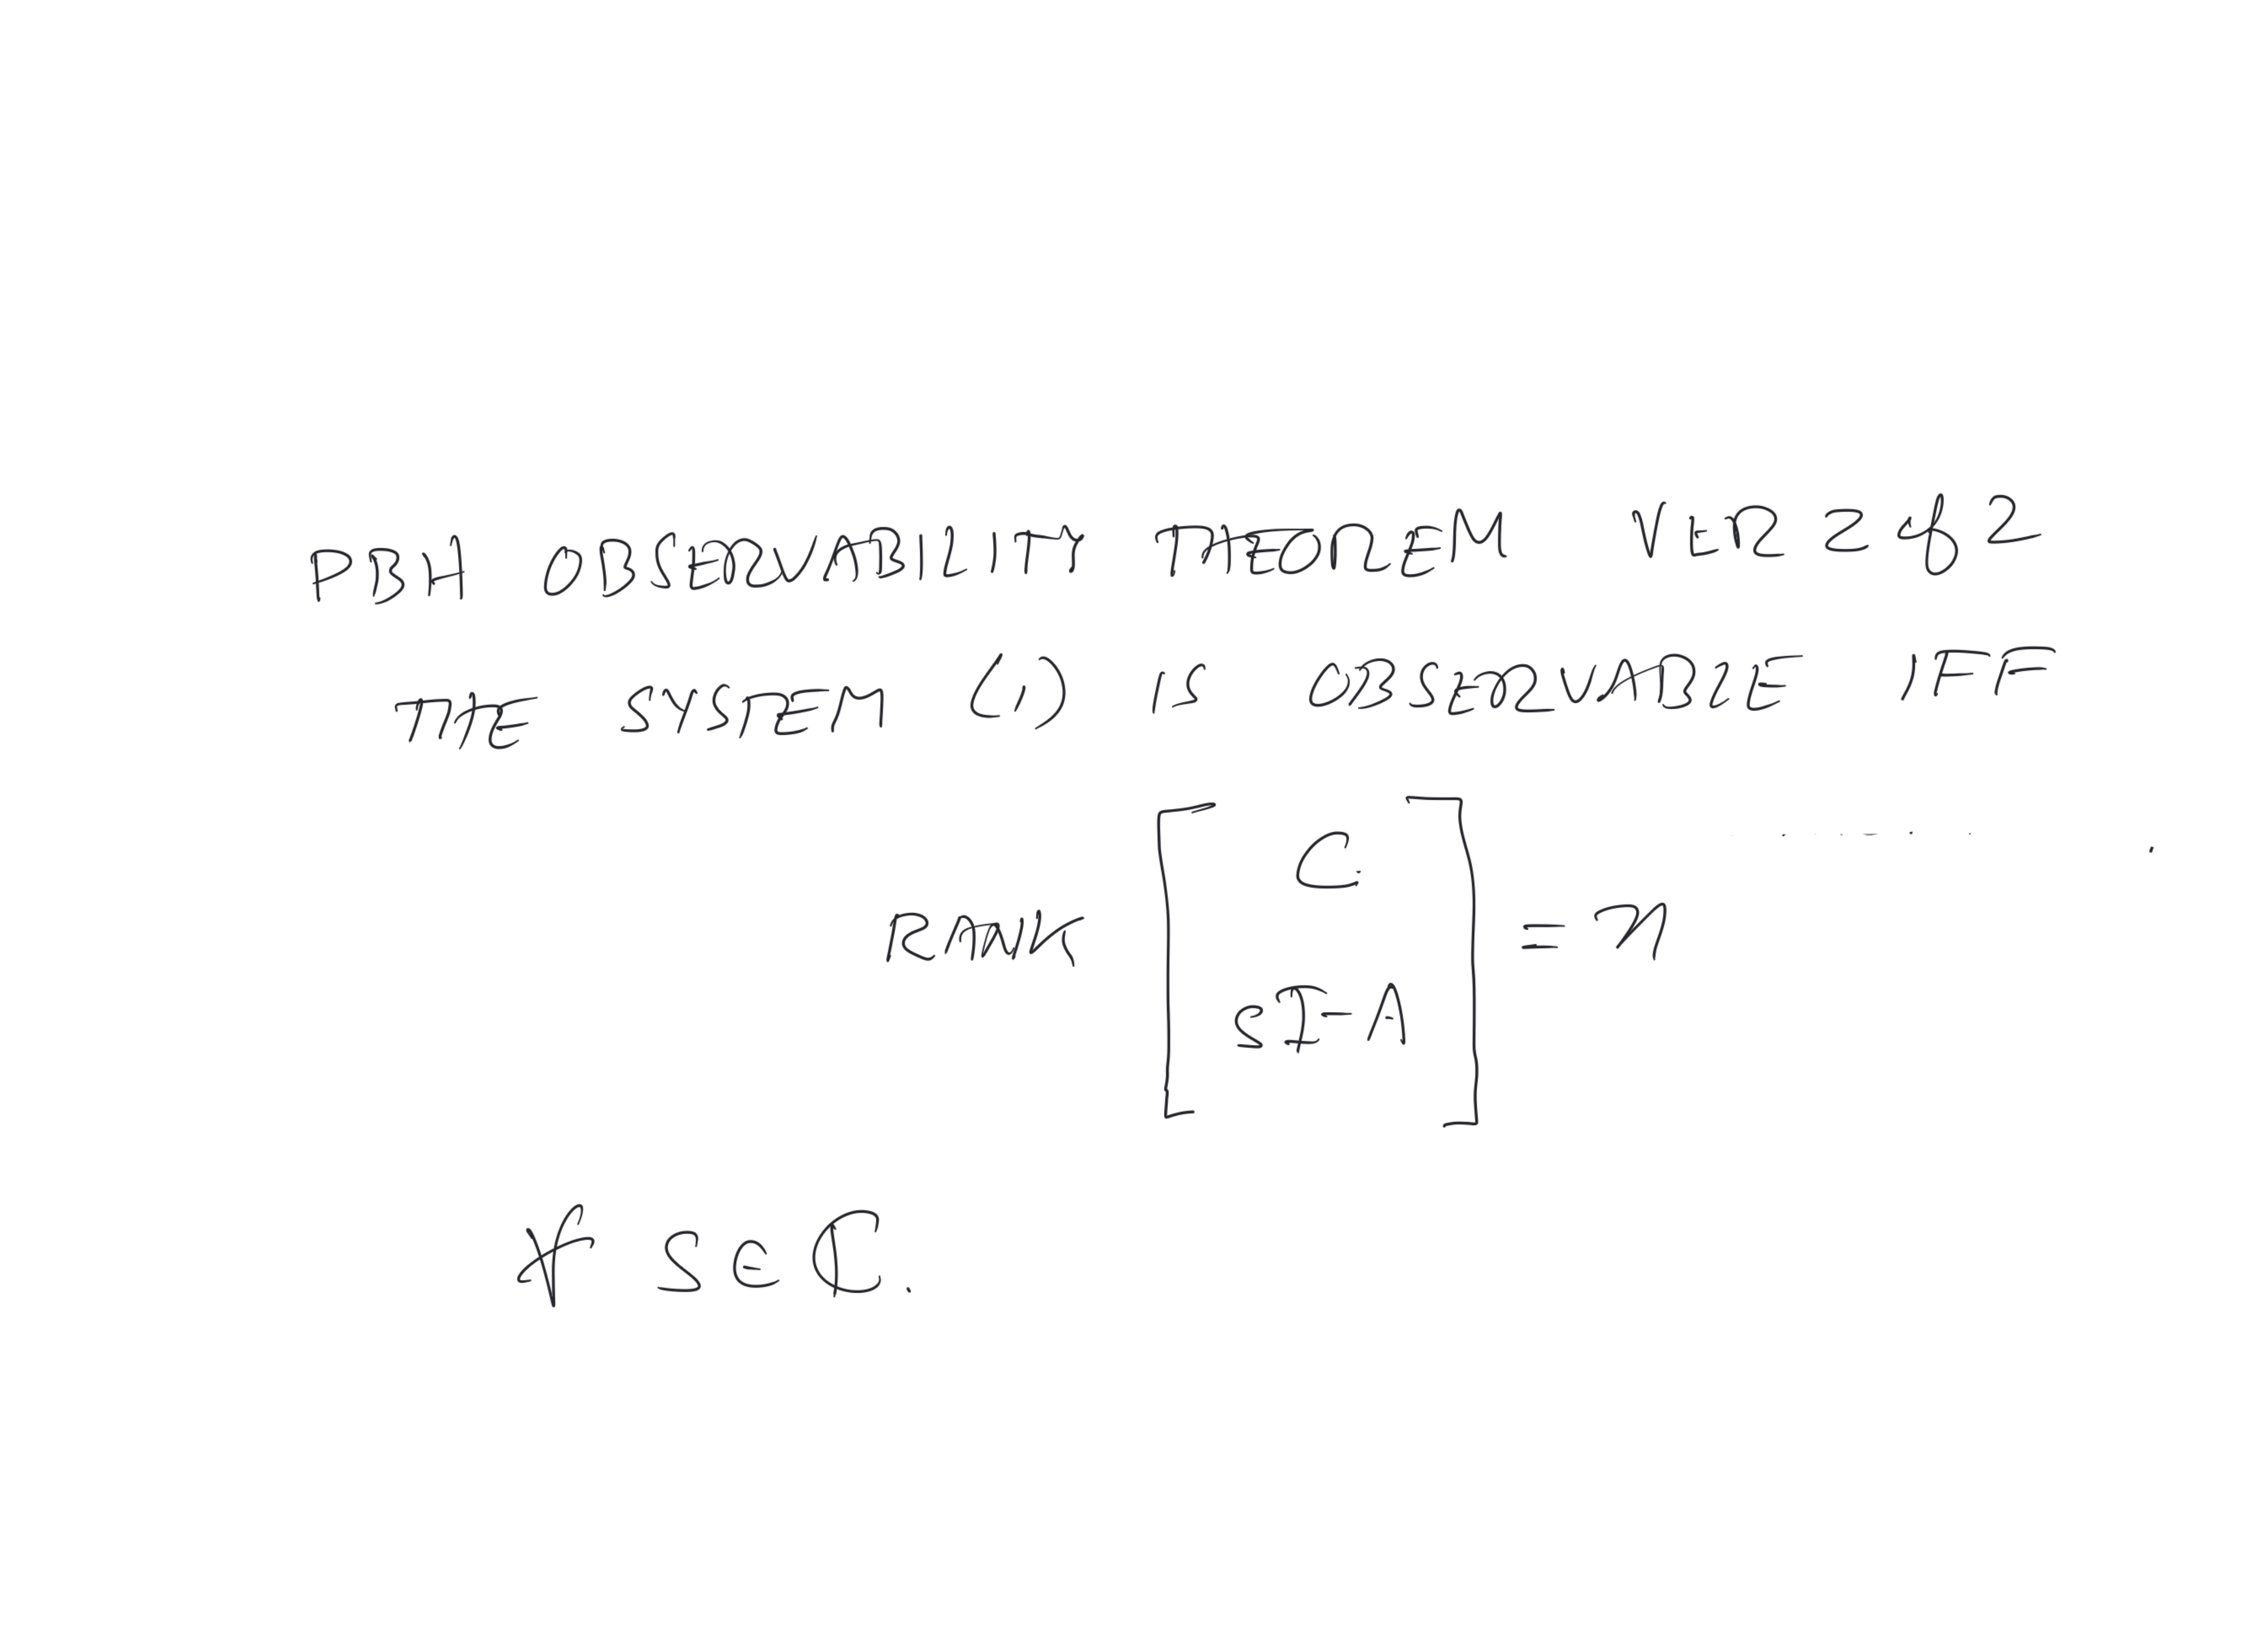 PBH OBSERVABILITY THEOREM VER 2 of 2
THE SYSTEM (1) IS OBSERVABLE IFF
RANK [ C
sI-A ] = n
∀ s ∈ ℂ.